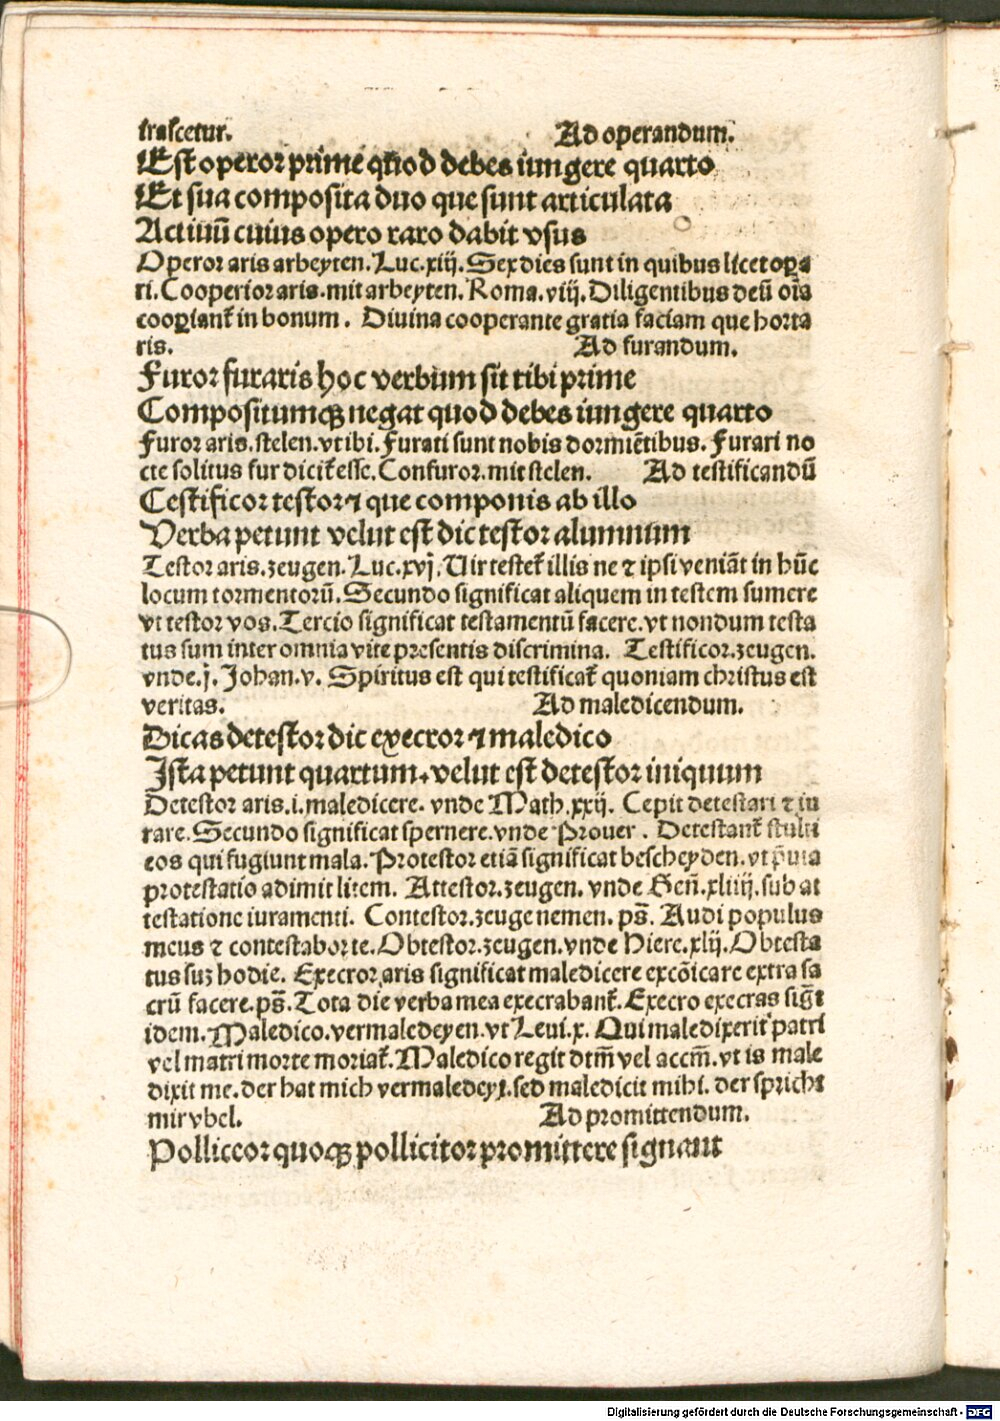 irascetur. Ad operandum.
Est operor prime quod debes iungere quarto
Et sua composita duo que sunt articulata
Actiuū cuius opero raro dabit vsus
Operor aris arbeyten. Luc.xiij. Sex dies sunt in quibus licet oꝑa
ri. Cooperior aris. mit arbeyten. Roma. viij. Diligentibus deū oīa
cooꝑiant̄ in bonum. Diuina cooperante gratia faciam que horta
ris. Ad furandum.
Furor furaris hoc verbum sit tibi prime
Compositumqꝫ negat quod debes iungere quarto
Furor aris. stelen. vt ibi. Furati sunt nobis dormiētibus. Furari no
cte solitus fur dicit̄ esse. Confuror. mit stelen. Ad testificandū
Testificor testor ⁊ que componis ab illo
Verba petunt velut est dic testor alumnum
Testor aris. zeugen. Luc.xvj. Uir testet̄ illis ne ⁊ ipsi veniāt in hūc
locum tormentorū. Secundo significat aliquem in testem sumere
vt testor vos. Tercio significat testamentū facere. vt nondum testa
tus sum inter omnia vite presentis discrimina. Testificor. zeugen.
vnde. j. Johan. v. Spiritus est qui testificat̄ quoniam christus est
veritas. Ad maledicendum.
Dicas detestor dic execror ⁊ maledico
Ista petunt quartum. velut est detestor iniquum
Detestor aris. i. maledicere. vnde Math. xxij. Cepit detestari ⁊ iu
rare. Secundo significat spernere. vnde Prouer. Detestant̄ stulti
eos qui fugiunt mala. Protestor etiā significat bescheyden. vt p̄uia
protestatio adimit litem. Attestor. zeugen. vnde Gen̄. xliiij. sub at
testatione iuramenti. Contestor. zeuge nemen. ps̄. Audi populus
meus ⁊ contestabor te. Obtestor. zeugen. vnde Hiere. xlij. Obtesta
tus suꝫ hodie. Execror aris significat maledicere excōicare extra sa
crū facere. ps̄. Tota die verba mea execrabant̄. Execro execras sig̅t
idem. Maledico. vermaledeyen. vt Leui. x. Qui maledixerit patri
vel matri morte moriat̄. Maledico regit dtm̄ vel accm̄. vt is male
dixit me. der hat mich vermaledeyt. sed maledicit mihi. der spricht
mir vbel. Ad promittendum.
Polliceor quoqꝫ pollicitor promittere signant
Digitalisierung gefördert durch die Deutsche Forschungsgemeinschaft - DFG